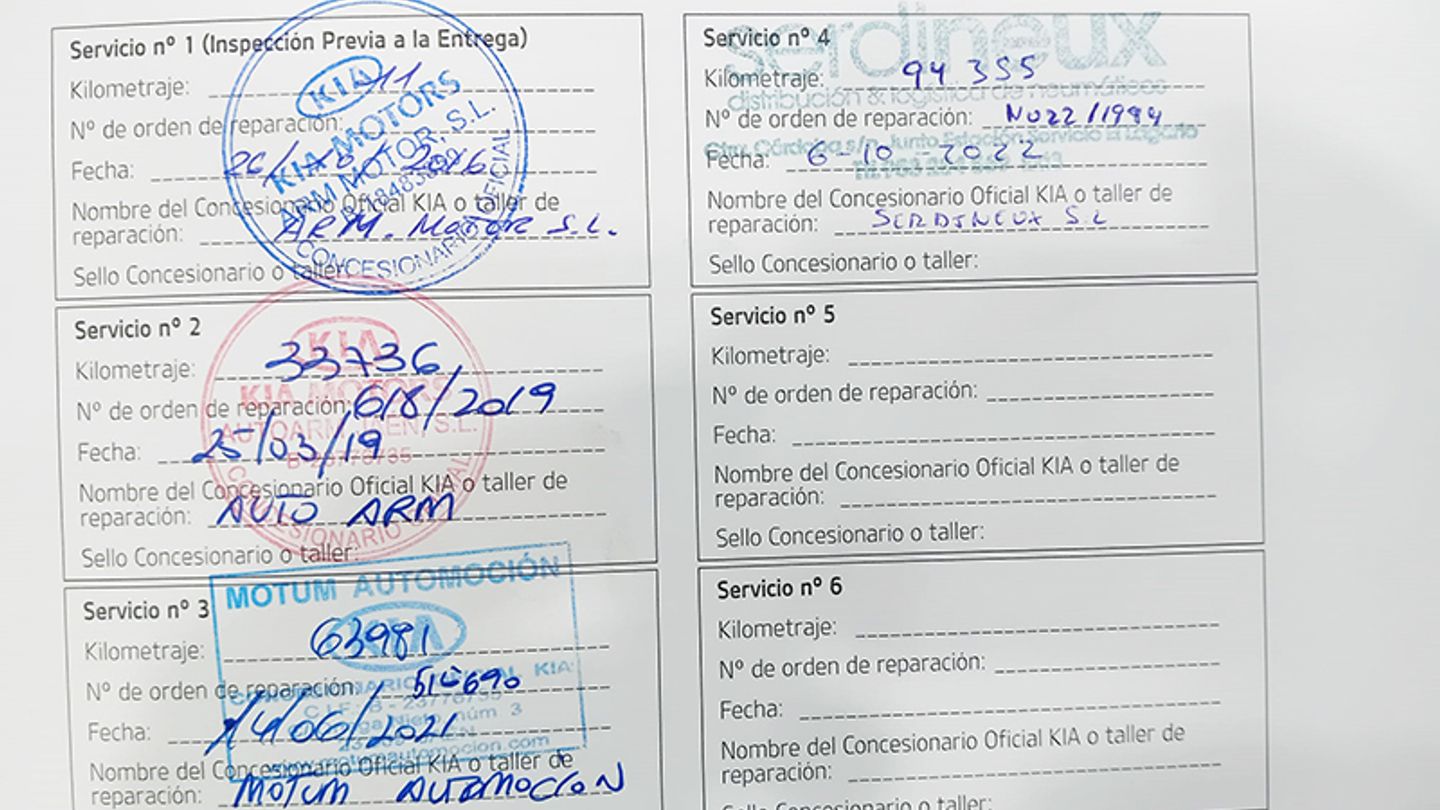 Servicio nº 1 (Inspección Previa a la Entrega)
Kilometraje: 11
Nº de orden de reparación:
Fecha: 26/ 2016
Nombre del Concesionario Oficial KIA o taller de
reparación: ARM. MOTOR S.L.
Sello Concesionario o taller:
KIA
KIA MOTORS
ARM MOTOR, S.L.
CONCESIONARIO OFICIAL
Servicio nº 2
Kilometraje: 33736
Nº de orden de reparación: 618/2019
Fecha: 25/03/19
Nombre del Concesionario Oficial KIA o taller de
reparación: AUTO ARM
Sello Concesionario o taller:
KIA
KIA MOTORS
AUTOARM JAEN, S.L.
CONCESIONARIO
Servicio nº 3
Kilometraje: 63981
Nº de orden de reparación:
Fecha: 14/06/2021
Nombre del Concesionario Oficial KIA o taller de
reparación: MOTUM AUTOMOCION
MOTUM AUTOMOCIÓN
KIA
KIA
C.I.F.: B - 23776735
núm 3
Servicio nº 4
Kilometraje: 94 355
Nº de orden de reparación: NO22/1994
Fecha: 6-10-2022
Nombre del Concesionario Oficial KIA o taller de
reparación: SERDINEUX S.L
Sello Concesionario o taller:
serdineux
distribución & logística de neumáticos
Ctra. Córdoba s/n Junto Estación Servicio El Lagarto
Servicio nº 5
Kilometraje:
Nº de orden de reparación:
Fecha:
Nombre del Concesionario Oficial KIA o taller de
reparación:
Sello Concesionario o taller:
Servicio nº 6
Kilometraje:
Nº de orden de reparación:
Fecha:
Nombre del Concesionario Oficial KIA o taller de
reparación:
Sello Concesionario o taller: